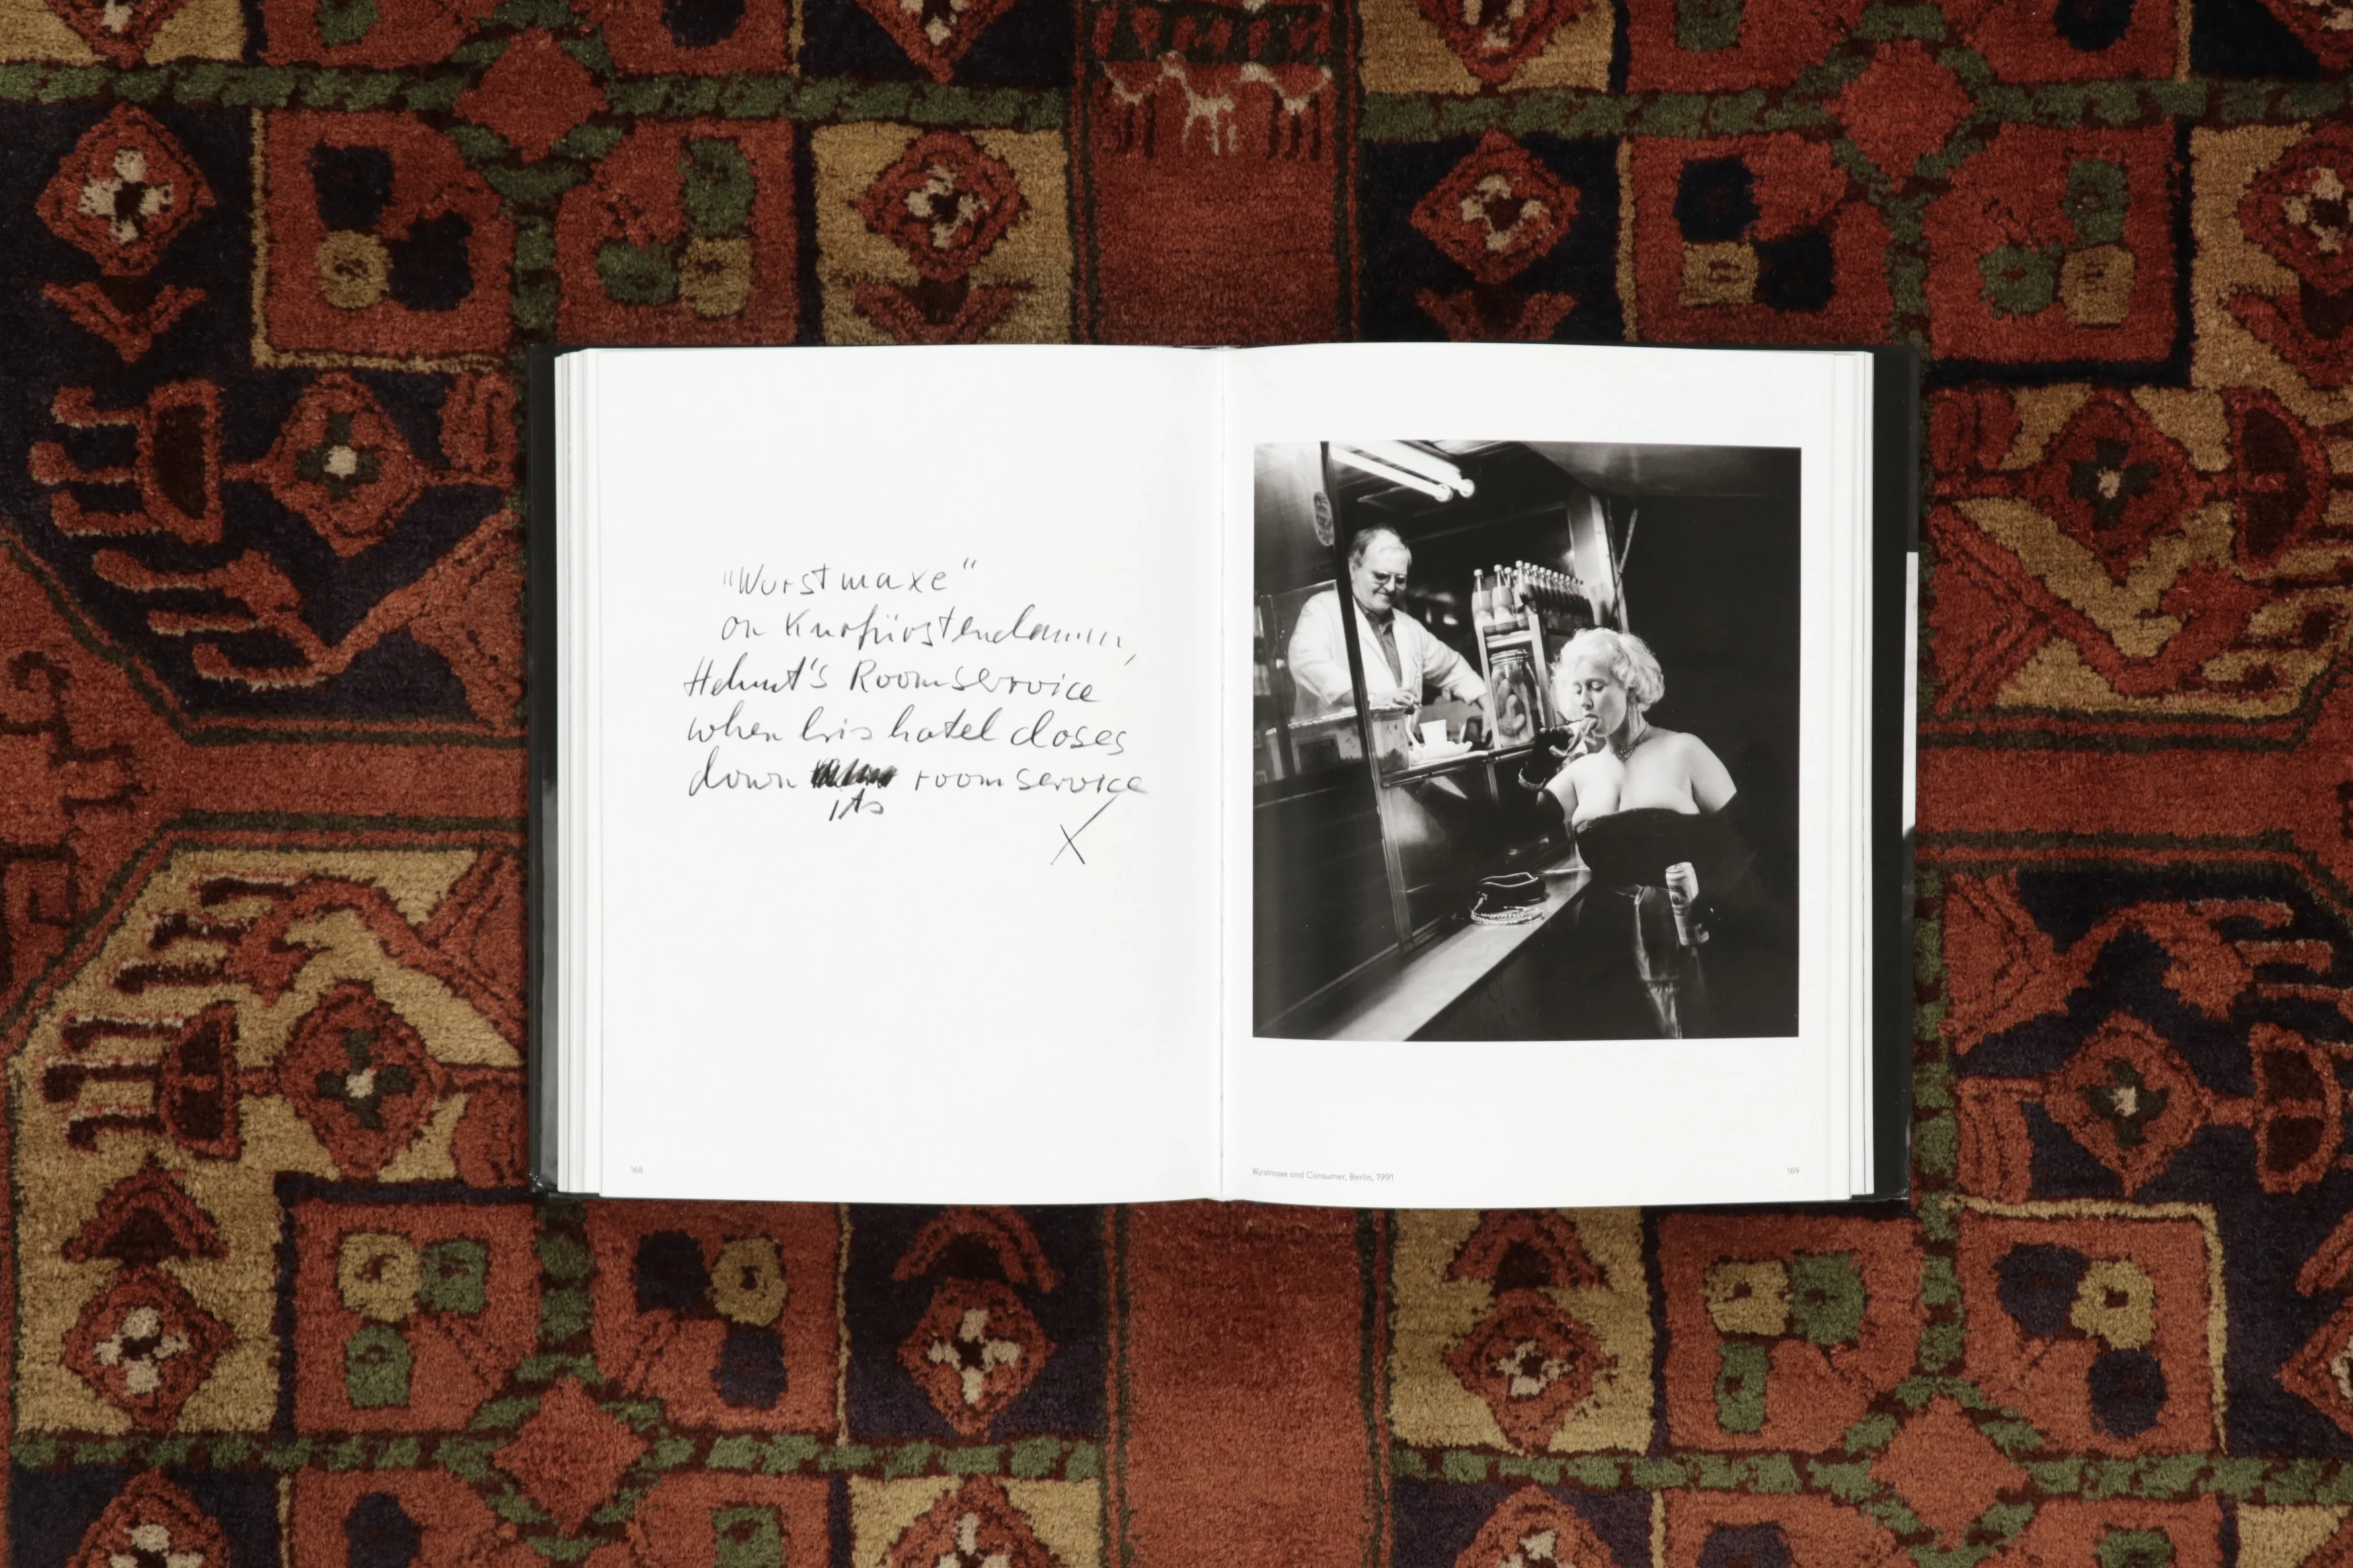 "Wurstmaxe"
on Kurfürstendamm,
Helmut's Roomservice
when his hotel closes
down its roomservice
X
168
Wurstmaxe and Consumer, Berlin, 1991
169